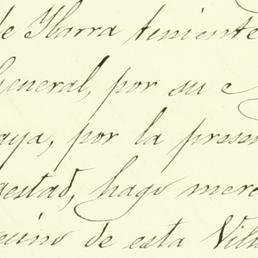 de Ibarra teniente
General, por su
aya, por la prese
gestad, hago merc
ecino de esta Vill